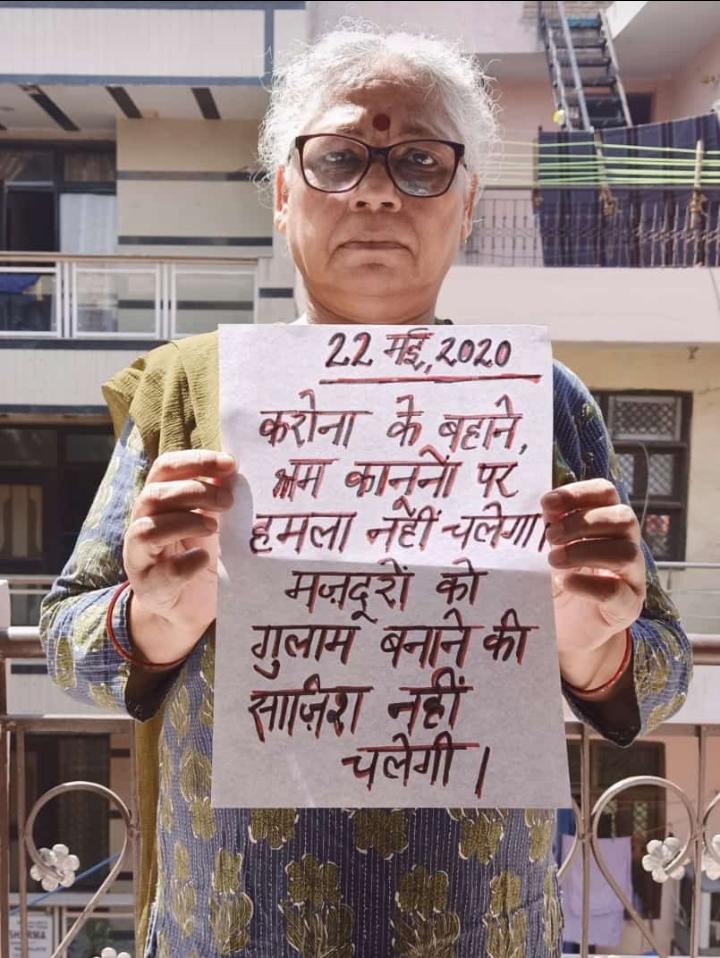 22 मई, 2020
करोना के बहाने,
श्रम कानूनों पर
हमला नहीं चलेगा।
मज़दूरों को
गुलाम बनाने की
साज़िश नहीं
चलेगी।
SHARMA